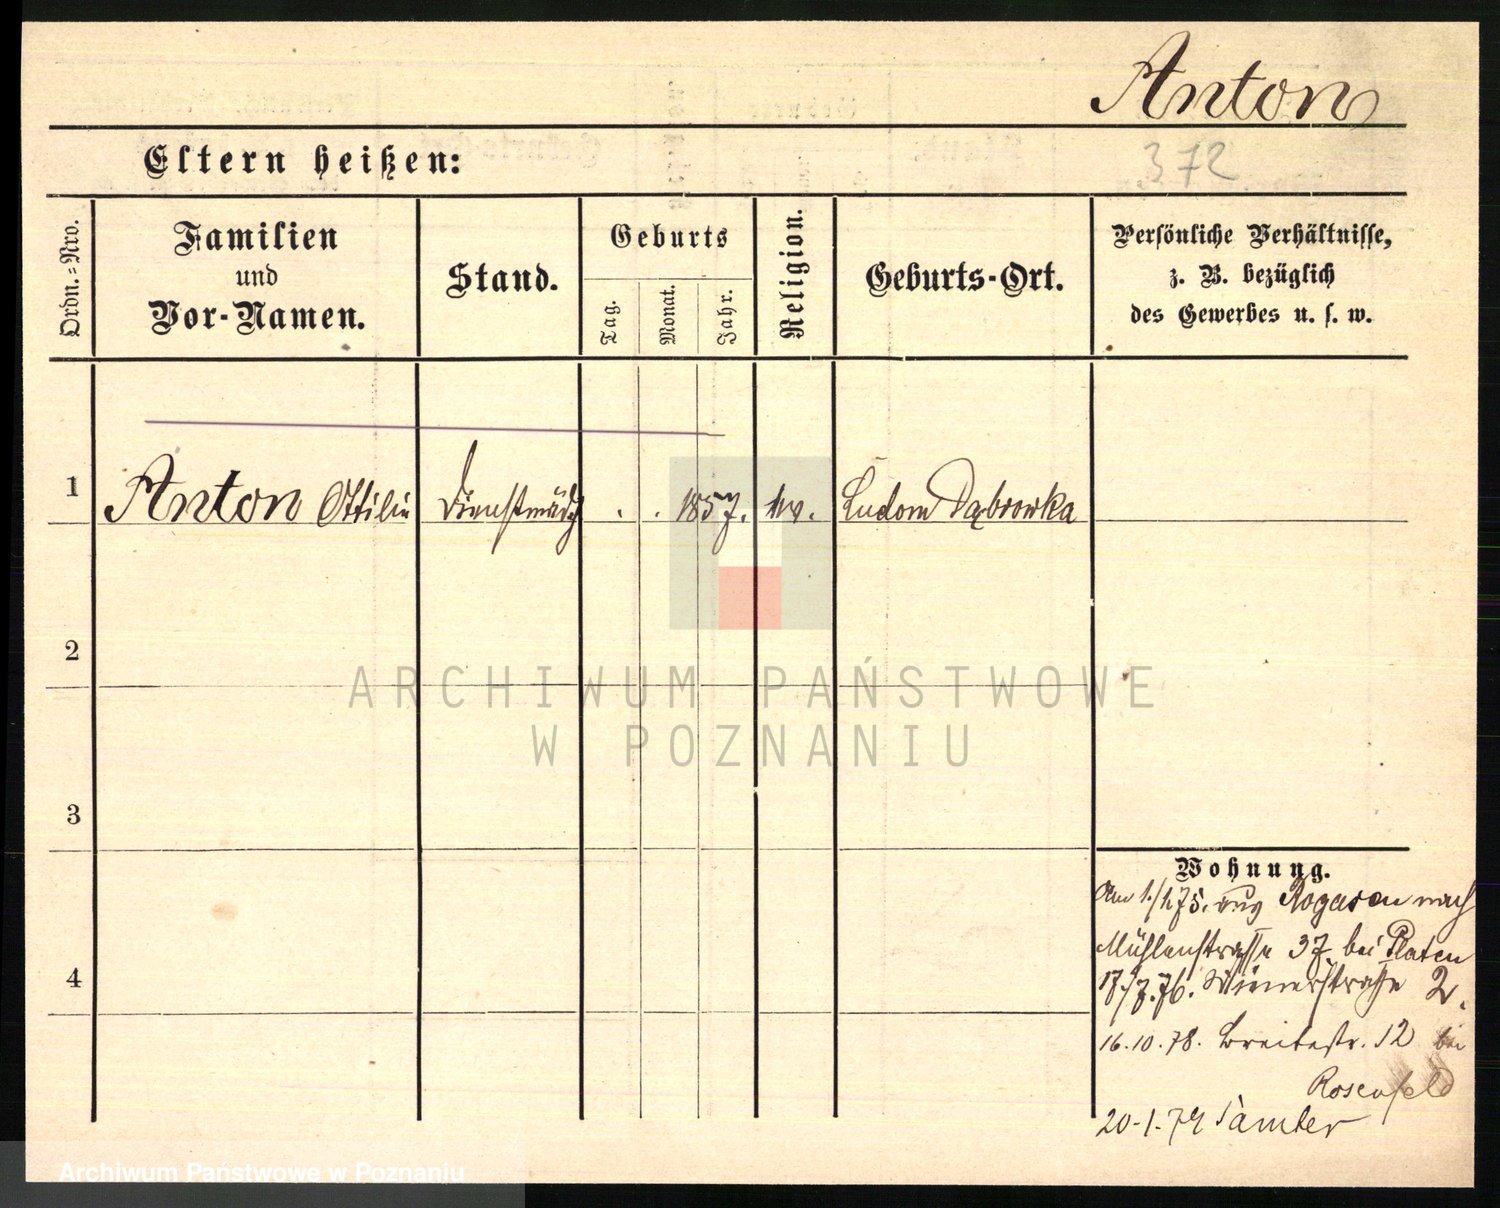 Anton
372
Eltern heißen:
Ordn.=Nro.
Familien
und
Vor-Namen.
Stand.
Geburts
Tag.
Monat.
Jahr.
Religion.
Geburts-Ort.
Persönliche Verhältnisse,
z. B. bezüglich
des Gewerbes u. s. w.
1 Anton Ottilie Dienstmädch . . 1857. ev. Ludom Dąbrowka
2
3
4
Wohnung.
Am 1./1.75. aus Rogasen nach
Mühlenstrasse 37. bei Platen
17./7.76. Wienerstrasse 2.
16.10.78. Breitestr. 12 bei
Rosenfeld
20.1.79 Samter
ARCHIWUM PAŃSTWOWE
W POZNANIU
Archiwum Państwowe w Poznaniu